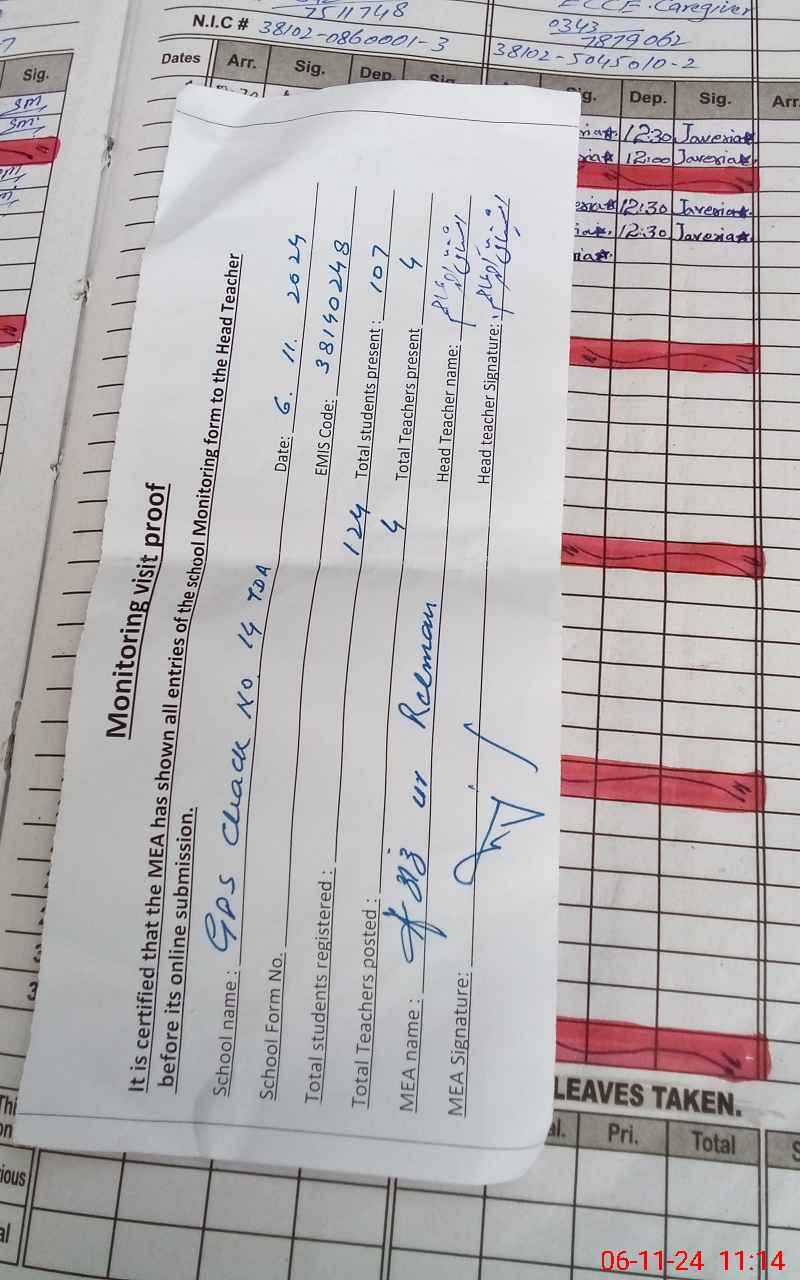 7511748
N.I.C # 38102-0860001-3
ECCE. Caregiver
0343
7879062
38102-5045010-2
Dates Arr. Sig. Dep.
Sig.
Dep. Sig. Arr.
12:30 Javeria
12:00 Javeria
12:30 Javeria
12:30 Javeria
Monitoring visit proof
It is certified that the MEA has shown all entries of the school Monitoring form to the Head Teacher
before its online submission.
School name : GPS Chack No. 14 TDA Date: 6. 11. 2024
School Form No. EMIS Code: 38140248
Total students registered : 124 Total students present : 107
Total Teachers posted : 4 Total Teachers present 4
MEA name : ur Rehman Head Teacher name:
MEA Signature: Head teacher Signature:
LEAVES TAKEN.
Pri. Total
06-11-24 11:14